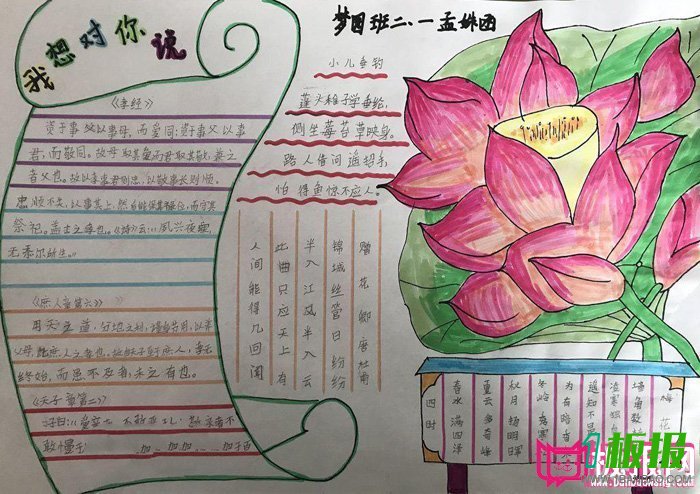 我想对你说
《孝经》
资于事父以事母，而爱同；资于事父以事
君，而敬同。故母取其爱而君取其敬，兼之
者父也。故以孝事君则忠，以敬事长则顺。
忠顺不失，以事其上，然后能保其禄位，而守其
祭祀。盖士之孝也。《诗》云：夙兴夜寐，
无忝尔所生。
《庶人章第六》
用天之道，分地之利，谨身节用，以养
父母，此庶人之孝也。故自天子至于庶人，孝无
终始，而患不及者，未之有也。
《天子章第二》
子曰：爱亲
敢慢于
梦圆班二、一孟姝图
小儿垂钓
蓬头稚子学垂纶，
侧坐莓苔草映身。
路人借问遥招手，
怕得鱼惊不应人。
赠花卿 唐杜甫
锦城丝管日纷纷
半入江风半入云
此曲只应天上有
人间能得几回闻
梅花
墙角数
凌寒独
遥知不是
为有暗
冬岭秀寒
秋月扬明晖
夏云多奇峰
春水满四泽
四时
板报